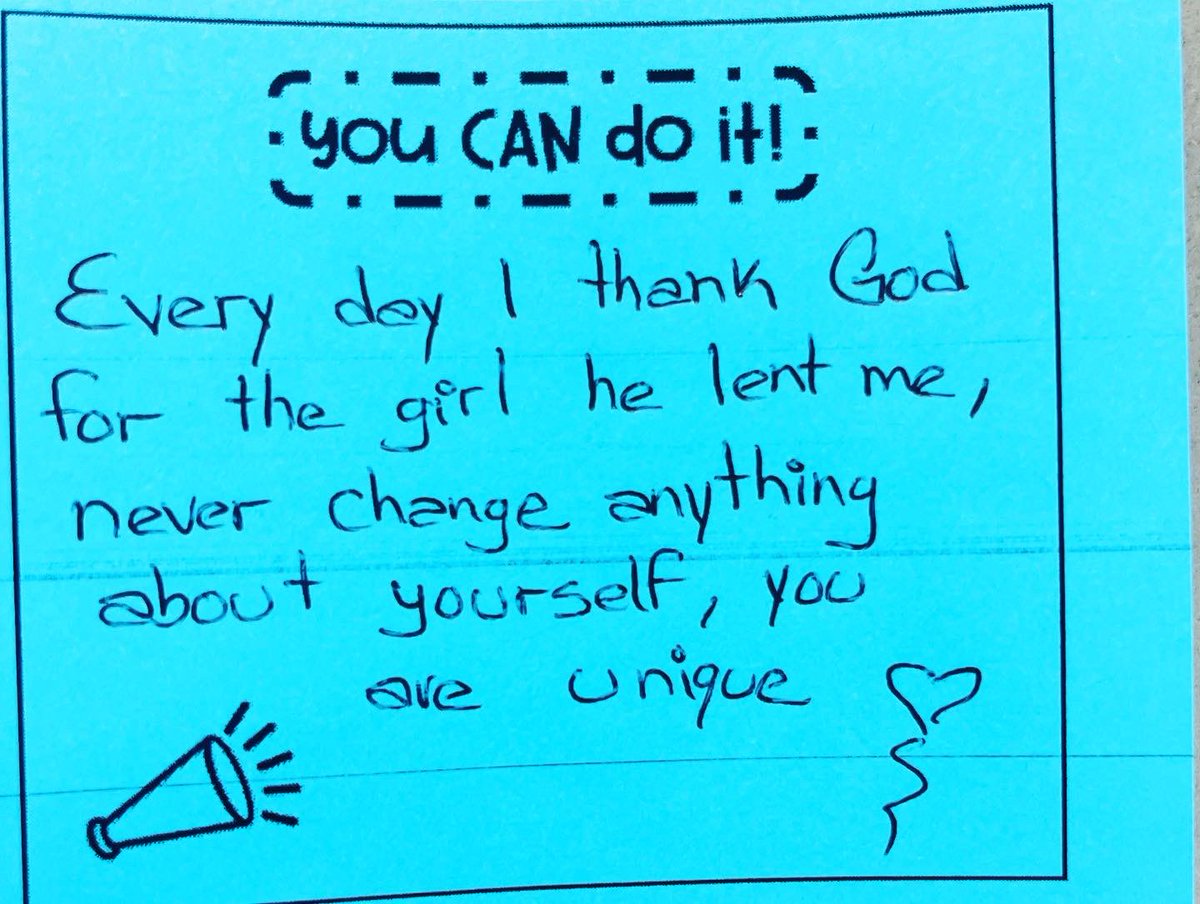 you CAN do it!
Every day I thank God
for the girl he lent me,
never change anything
about yourself, you
are unique